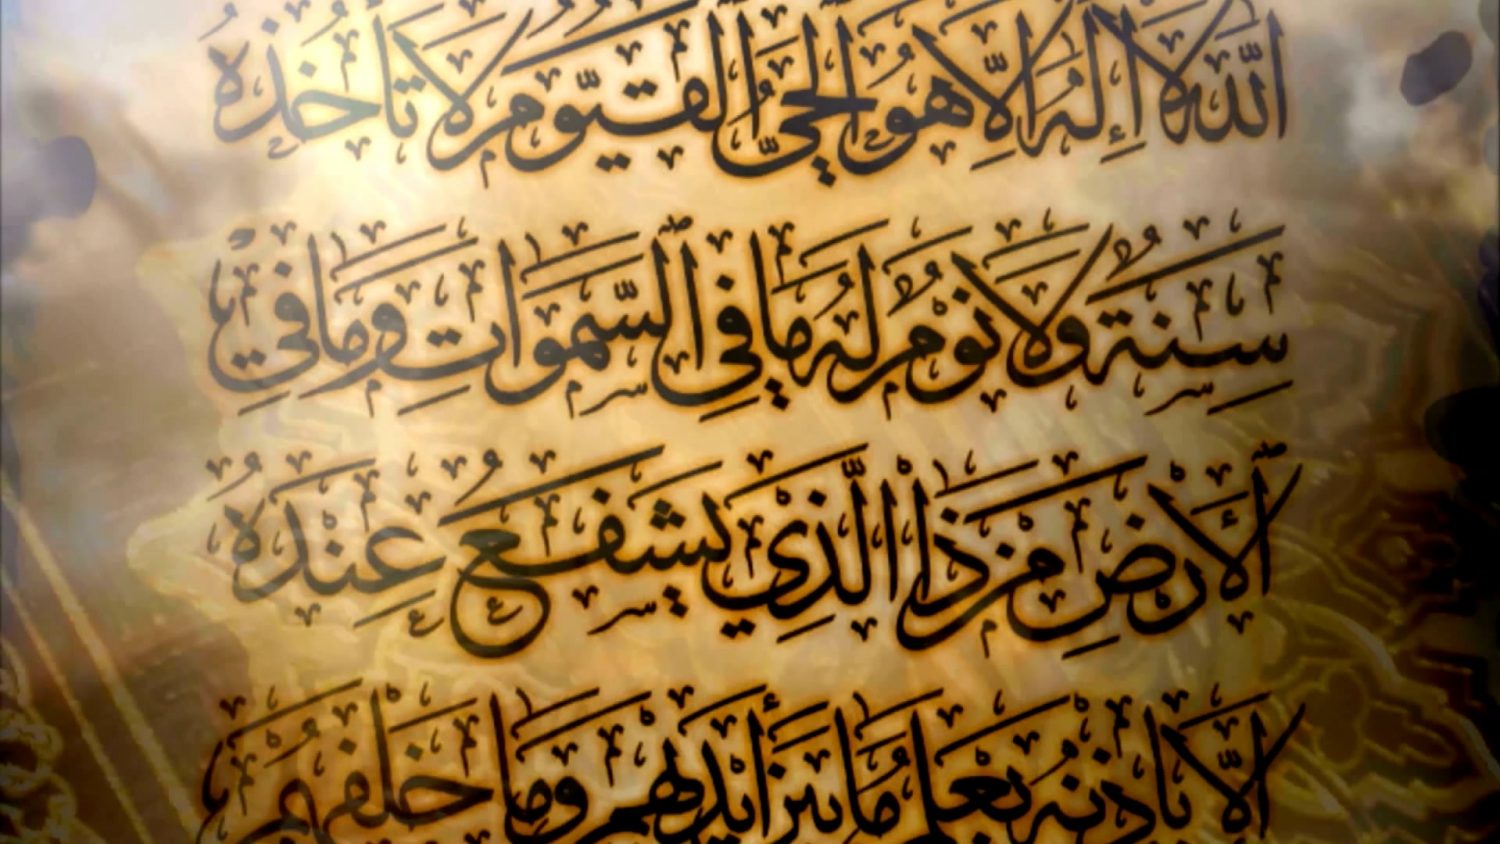 ٱللَّهُ لَا إِلَٰهَ إِلَّا هُوَ ٱلْحَىُّ ٱلْقَيُّومُ لَا تَأْخُذُهُ
سِنَةٌ وَلَا نَوْمٌ لَهُ مَا فِي ٱلسَّمَوَاتِ وَمَا فِي
ٱلْأَرْضِ مَنْ ذَا الَّذِي يَشْفَعُ عِنْدَهُ
إِلَّا بِإِذْنِهِ يَعْلَمُ مَا بَيْنَ أَيْدِيهِمْ وَمَا خَلْفَهُمْ